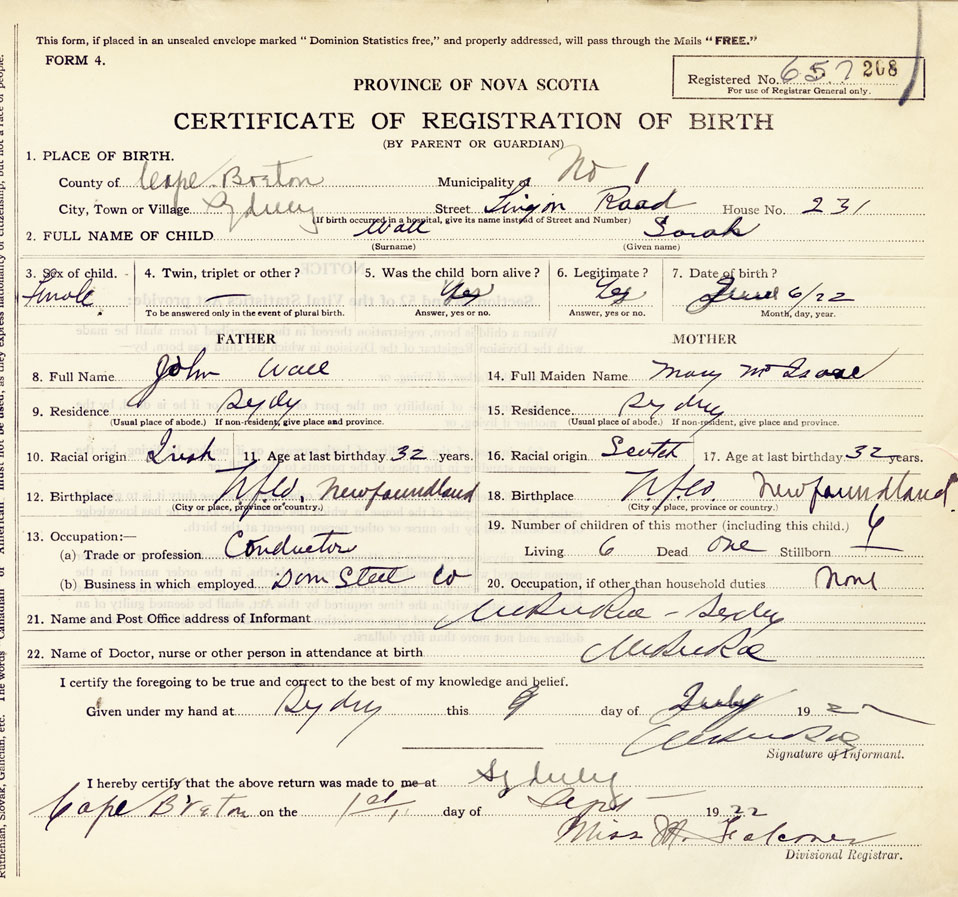 This form, if placed in an unsealed envelope marked "Dominion Statistics free," and properly addressed, will pass through the Mails "FREE."
FORM 4.
Registered No. 657 208
For use of Registrar General only.
PROVINCE OF NOVA SCOTIA
CERTIFICATE OF REGISTRATION OF BIRTH
(BY PARENT OR GUARDIAN)
1. PLACE OF BIRTH.
County of Cape Breton Municipality of No 1
City, Town or Village Sydney Street Lingan Road House No. 231
(If birth occurred in a hospital, give its name instead of Street and Number)
2. FULL NAME OF CHILD Wall Sarah
(Surname) (Given name)
3. Sex of child. 4. Twin, triplet or other? 5. Was the child born alive? 6. Legitimate? 7. Date of birth?
Female — Yes Yes June 6/22
To be answered only in the event of plural birth. Answer, yes or no. Answer, yes or no. Month, day, year.
FATHER MOTHER
8. Full Name John Wall 14. Full Maiden Name Mary McIsaac
9. Residence Sydney 15. Residence Sydney
(Usual place of abode.) If non-resident, give place and province. (Usual place of abode.) If non-resident, give place and province.
10. Racial origin Irish 11. Age at last birthday 32 years. 16. Racial origin Scotch 17. Age at last birthday 32 years.
12. Birthplace Nfld, Newfoundland 18. Birthplace Nfld Newfoundland.
(City or place, province or country.) (City or place, province or country.)
13. Occupation:— 19. Number of children of this mother (including this child.)
(a) Trade or profession Conductor Living 6 Dead one Stillborn
(b) Business in which employed Dom Steel Co 20. Occupation, if other than household duties None
21. Name and Post Office address of Informant – Sydney
22. Name of Doctor, nurse or other person in attendance at birth
I certify the foregoing to be true and correct to the best of my knowledge and belief.
Given under my hand at Sydney this 9 day of July 1922
Signature of Informant.
I hereby certify that the above return was made to me at Sydney
Cape Breton on the 1st day of Sept 1922
Miss M. Falconer
Divisional Registrar.